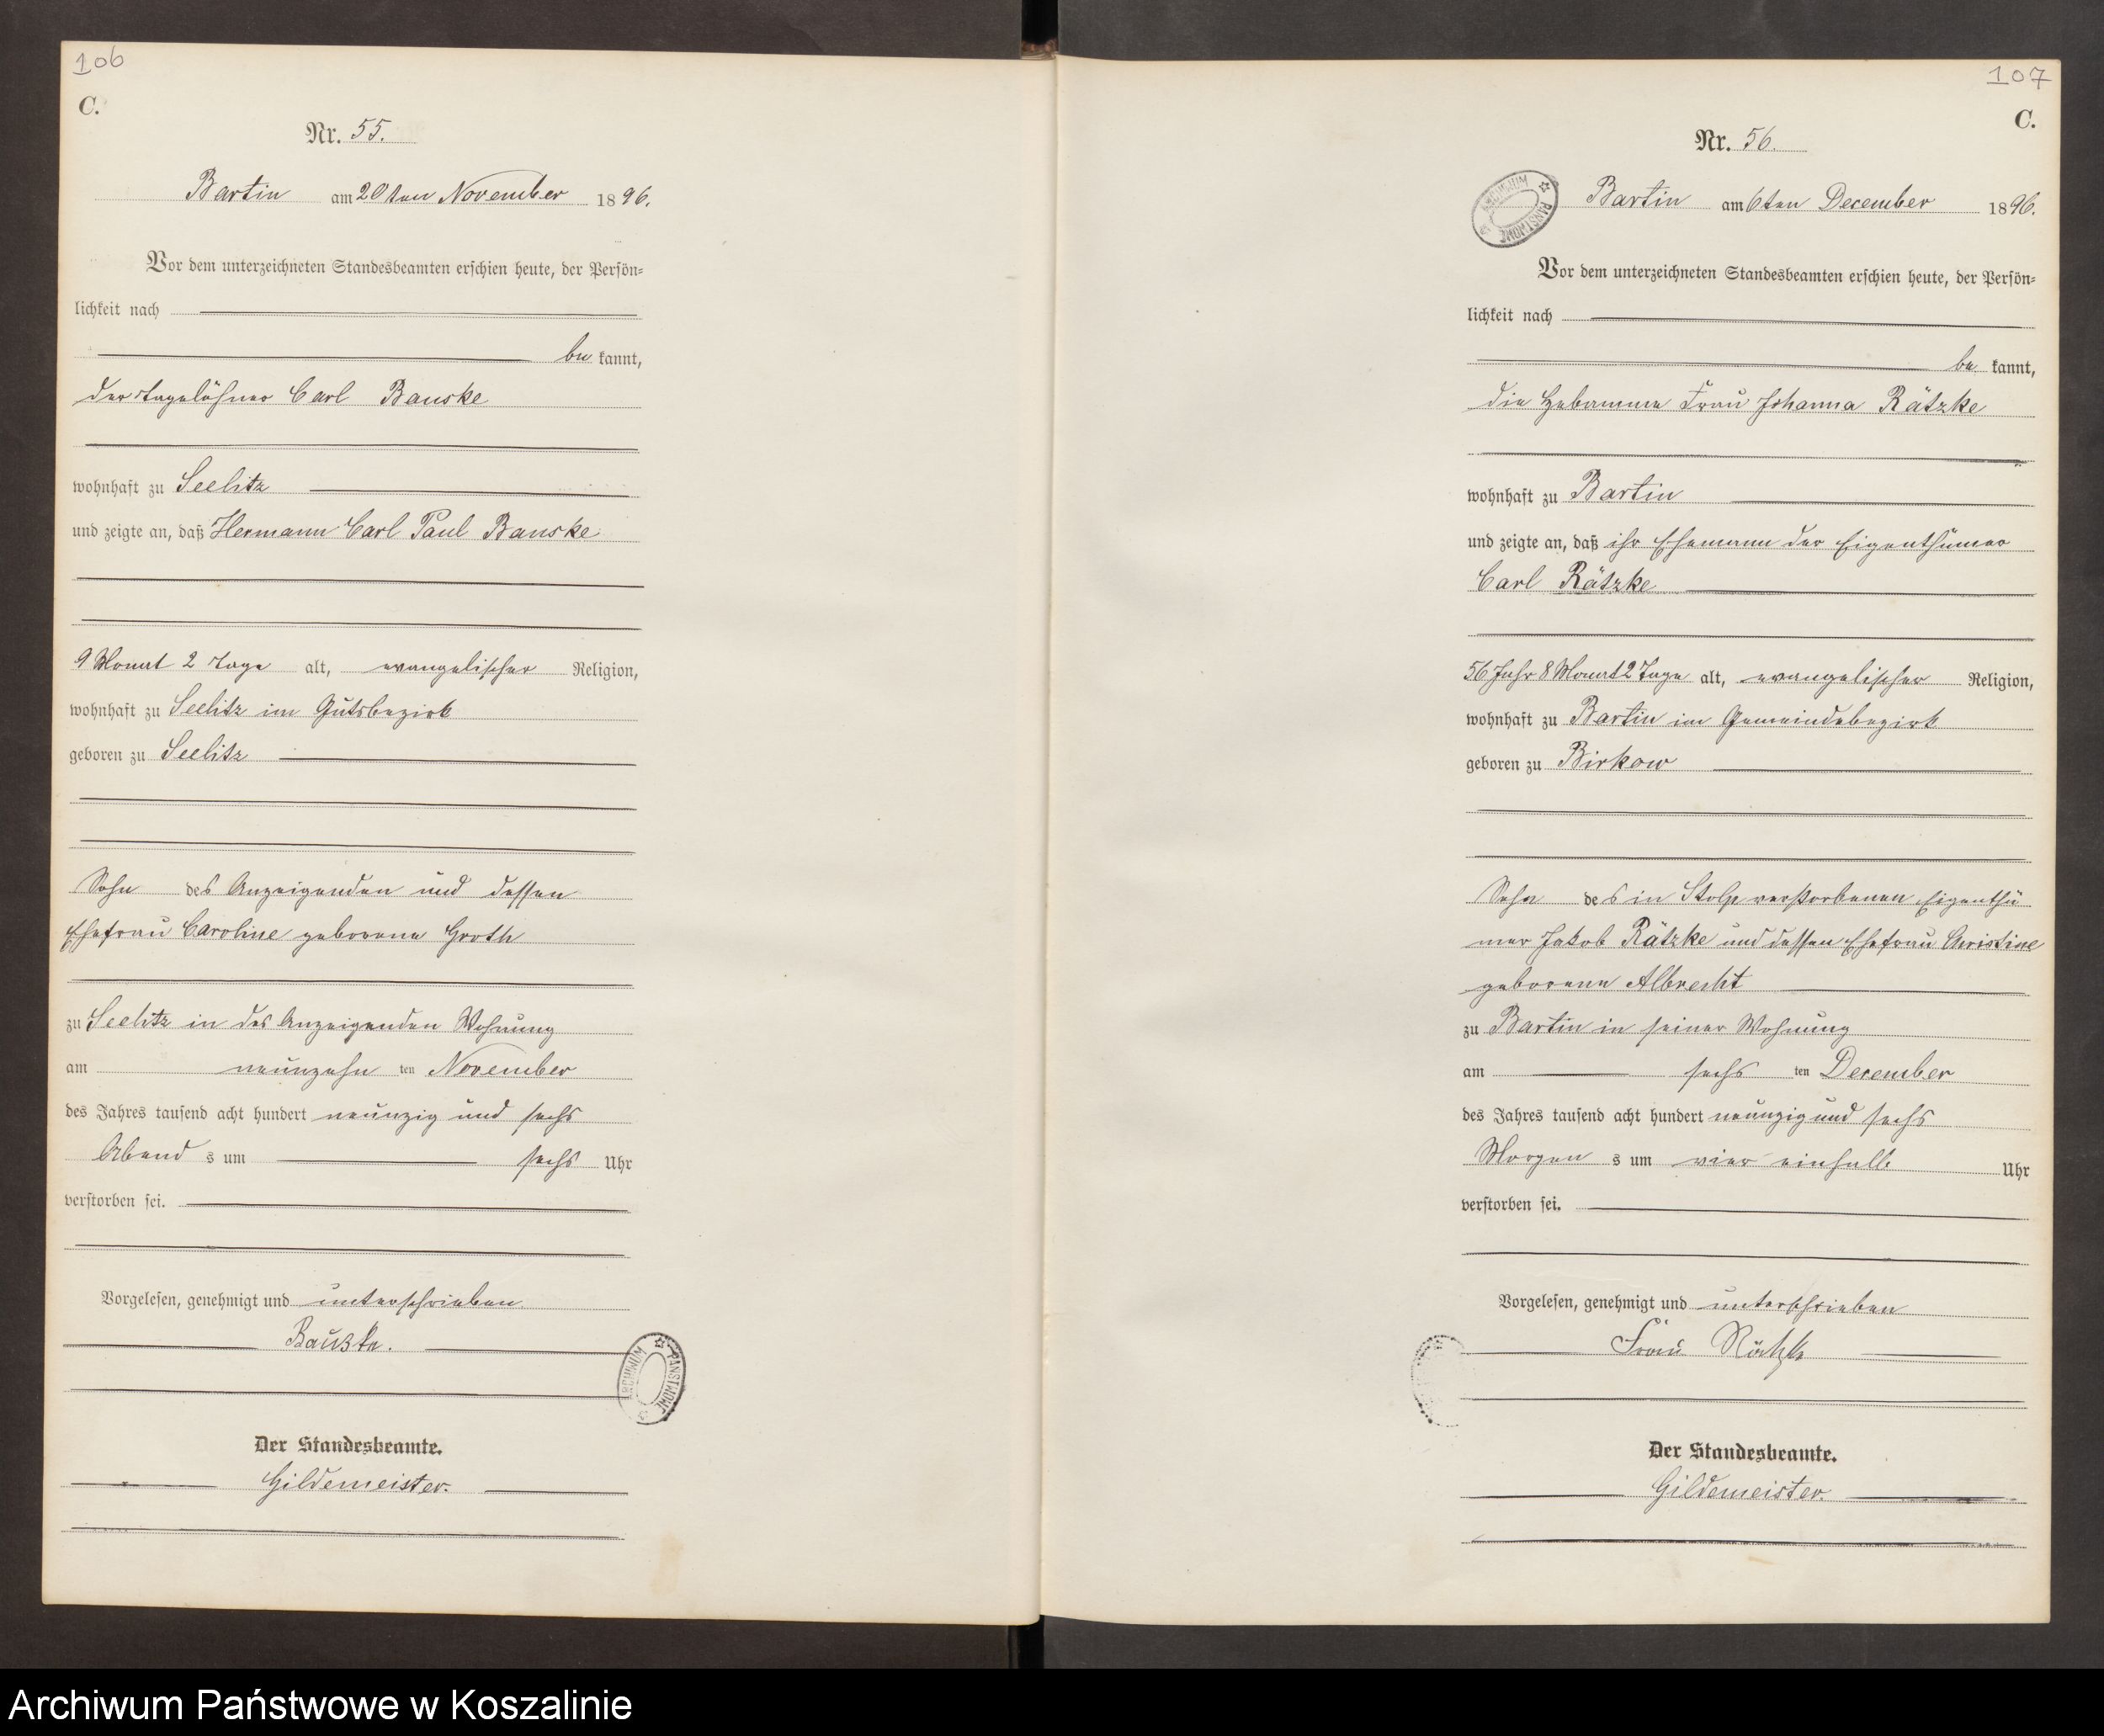 106
C.
Nr. 55.
Bartin am 20ten November 1896.
Vor dem unterzeichneten Standesbeamten erschien heute, der Persön-
lichkeit nach
be kannt,
der Tagelöhner Carl Bauske
wohnhaft zu Seelitz
und zeigte an, daß Hermann Carl Paul Bauske
9 Monat 2 Tage alt, evangelischer Religion,
wohnhaft zu Seelitz im Gutsbezirk
geboren zu Seelitz
Sohn des Anzeigenden und dessen
Ehefrau Caroline geborene Groth
zu Seelitz in des Anzeigenden Wohnung
am neunzehn ten November
des Jahres tausend acht hundert neunzig und sechs
Abend s um sechs Uhr
verstorben sei.
Vorgelesen, genehmigt und unterschrieben
Bauske.
ARCHIWUM PAŃSTWOWE
Der Standesbeamte.
Gildemeister.
107
C.
Nr. 56.
ARCHIWUM PAŃSTWOWE
Bartin am 6ten December 1896.
Vor dem unterzeichneten Standesbeamten erschien heute, der Persön-
lichkeit nach
be kannt,
die Hebamme Frau Johanna Rätzke
wohnhaft zu Bartin
und zeigte an, daß ihr Ehemann der Eigenthümer
Carl Rätzke
56 Jahr 8 Monat 2 Tage alt, evangelischer Religion,
wohnhaft zu Bartin im Gemeindebezirk
geboren zu Birkow
Sohn des in Stolp verstorbenen Eigenthü
mer Jakob Rätzke und dessen Ehefrau Christine
geborene Albrecht
zu Bartin in seiner Wohnung
am sechs ten December
des Jahres tausend acht hundert neunzig und sechs
Morgen s um vier einhalb Uhr
verstorben sei.
Vorgelesen, genehmigt und unterschrieben
Frau Rätzke
Der Standesbeamte.
Gildemeister.
Archiwum Państwowe w Koszalinie